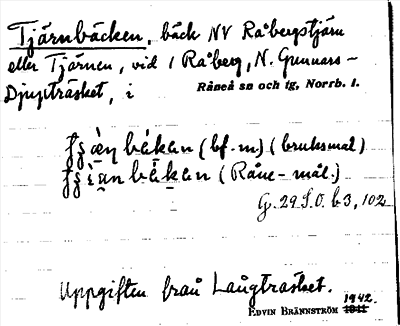 Tjärnbäcken, bäck NV Råbergstjärn
eller Tjärnen, vid 1 Råberg, N. Gunnars-
Djupträsket, i Råneå sn och tg, Norrb. l.
bákan (bf. m) (bruksmål)
bákan (Råne-mål.)
G. 29 S.O. b3, 102
Uppgiften från Långträsket.
EDVIN BRÄNNSTRÖM 1942. 1941